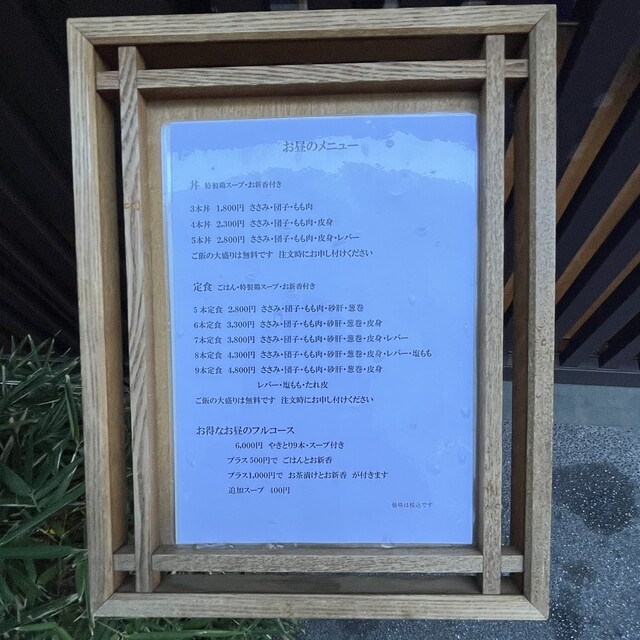 お昼のメニュー
丼 特製鶏スープ・お新香付き
3本丼 1,800円 ささみ・団子・もも肉
4本丼 2,300円 ささみ・団子・もも肉・皮身
5本丼 2,800円 ささみ・団子・もも肉・皮身・レバー
ご飯の大盛りは無料です 注文時にお申し付けください
定食 ごはん・特製鶏スープ・お新香付き
5本定食 2,800円 ささみ・団子・もも肉・砂肝・葱巻
6本定食 3,300円 ささみ・団子・もも肉・砂肝・葱巻・皮身
7本定食 3,800円 ささみ・団子・もも肉・砂肝・葱巻・皮身・レバー
8本定食 4,300円 ささみ・団子・もも肉・砂肝・葱巻・皮身・レバー・塩もも
9本定食 4,800円 ささみ・団子・もも肉・砂肝・葱巻・皮身
レバー・塩もも・たれ皮
ご飯の大盛りは無料です 注文時にお申し付けください
お得なお昼のフルコース
6,000円 やきとり9本・スープ付き
プラス500円で ごはんとお新香
プラス1,000円で お茶漬けとお新香 が付きます
追加スープ 400円
価格は税込です